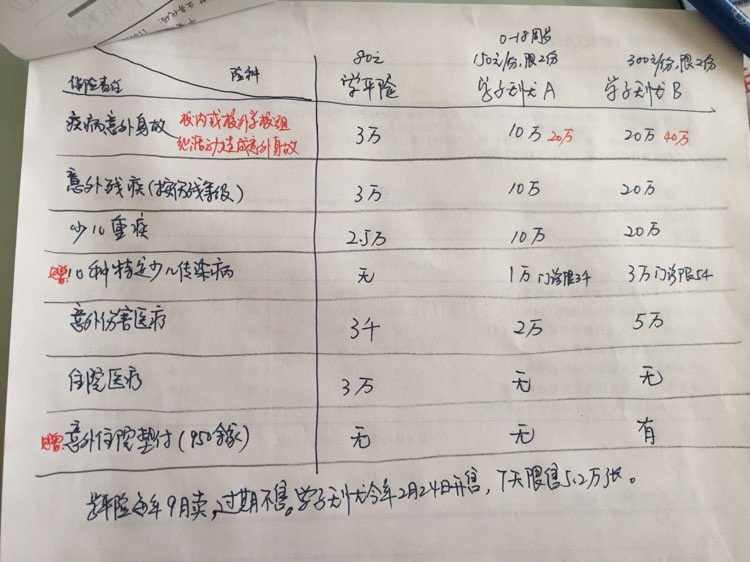 0-18周岁
80元 150元/份,限2份 300元/份,限2份
保险责任 险种 学平险 学子无忧A 学子无忧B
疾病意外身故 校内或校外学校组 3万 10万 20万 20万 40万
织活动造成意外身故
意外残疾(按伤残等级) 3万 10万 20万
少儿重疾 2.5万 10万 20万
赠:10种特定少儿传染病 无 1万门诊限3千 3万门诊限5千
意外伤害医疗 3千 2万 5万
住院医疗 3万 无 无
赠:意外住院垫付(950余家) 无 无 有
学平险每年9月卖,过期不售。学子无忧今年2月24日开售,7天限售5.2万张。